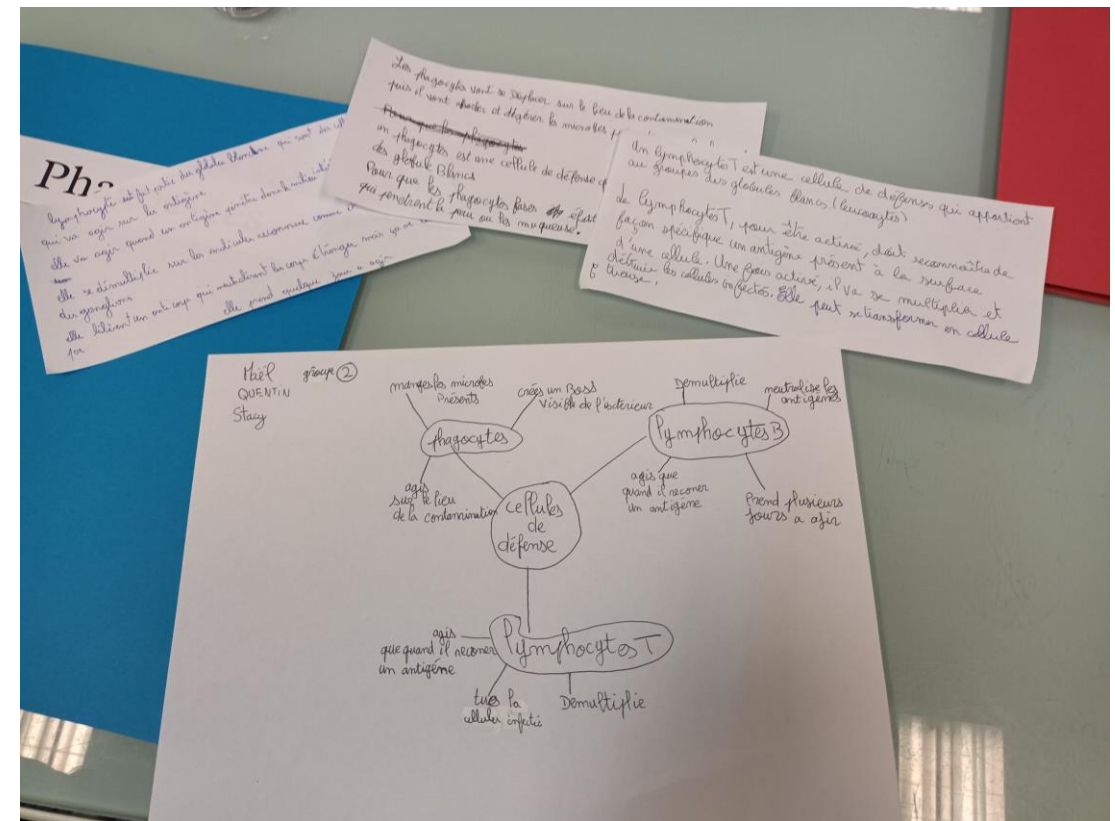 Pha
lymphocytes est fait partie des globules blancs qui sont des cell
qui va agir sur les antigène
elle va agir quand un antigène pénètre dans le milieu inté
elle se démultiplie sur les reconnus comme
du ganglions
elle libèrent un anti corps qui neutralisent les corps étranger mais ça ve
elle prend quelque jour a agir
Les phagocytes vont se déplacer sur le lieu de la contamination
puis il vont et digérer les microbes
Pour que les phagocytes
un phagocytes est une cellule de défense
des globule Blancs
Pour que les phagocytes
qui pénètrent la peau ou les muqueuse.
Un lymphocytes T est une cellule de défenses qui appartient
au groupes des globules blancs (leucocytes)
Le lymphocytes T, pour être activé, doit reconnaître de
façon spécifique un antigène présent à la surface
d'une cellule. Une fois activé, il va se multiplier et
détruire les cellules infectés. Elle peut se transformer en cellule
tueuse.
Maël groupe 2
QUENTIN
Stacy
manges les microbes
Présents
crées un Boss
visible de l'extérieur
phagocytes
agis
sur le lieu
de la contamination
Demultiplie
neutralise les
antigènes
lymphocytes B
agis que
quand il reconer
un antigène
Prend plusieurs
jours a agir
cellules
de
défense
lymphocytes T
agis
que quand il reconer
un antigène
tues la
cellules infectés
Demultiplie